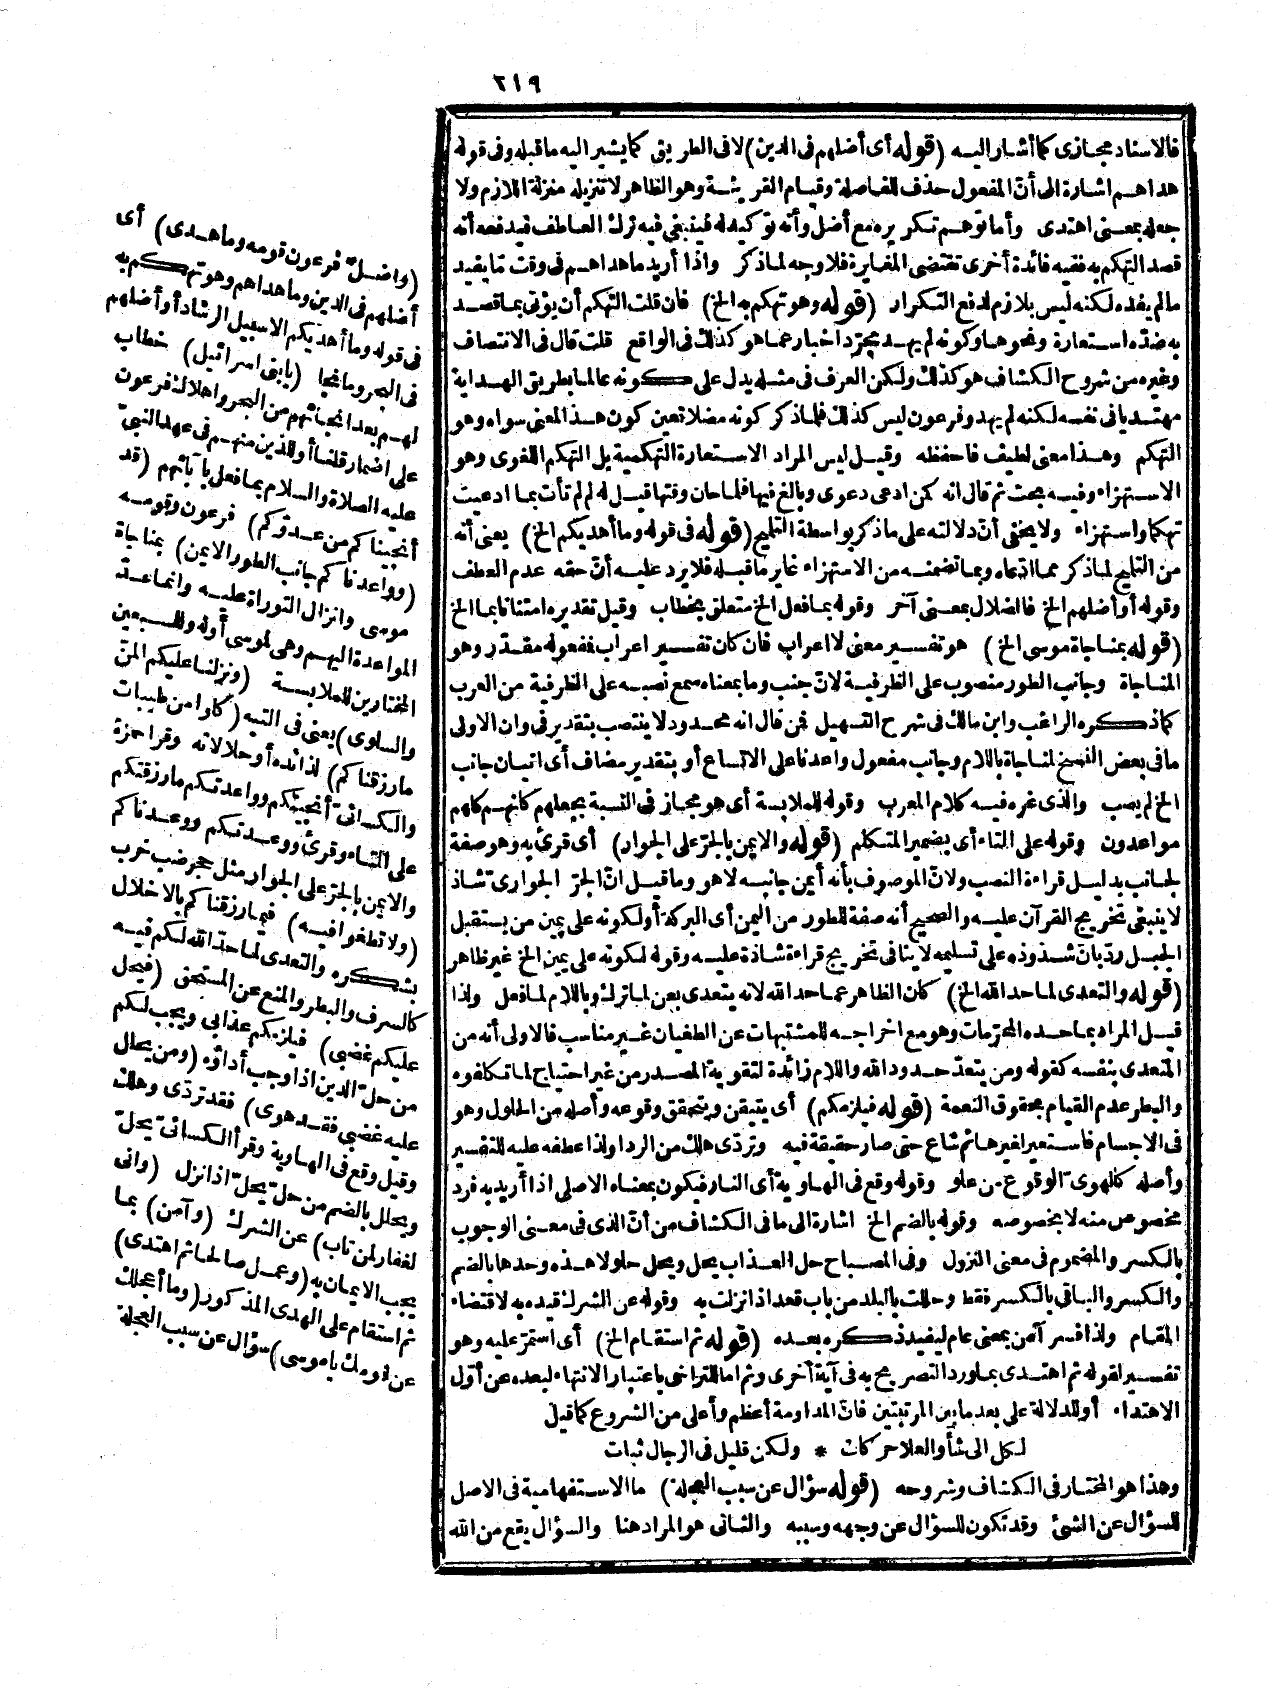 ٢١٩
فالاسناد مجازى كما أشار اليه (قوله أى أضلهم فى الدين) لا فى الطريق كما يشير اليه ما قبله وفى قوله
هداهم اشارة الى أنّ المفعول حذف للفاصلة وقيام القرينة وهو الظاهر لا تنزيله منزلة اللازم ولا
جعله بمعنى اهتدى وأما توهم تكريره مع أضل وأنه توكيد له فينبغى فيه ترك العاطف فيدفعه أنه
قصد التهكم به ففيه فائدة أخرى تقتضى المغايرة فلا وجه لما ذكر واذا أريد ما هداهم فى وقت ما يفيد
مالم يفده لكنه ليس بلازم لدفع التكرار (قوله وهو تهكم به الخ) فان قلت التهكم أن يؤتى بما قصد
به ضدّه استعارة ونحوها وكونه لم يهد مجرّد اخبار عما هو كذلك فى الواقع قلت قال فى الانتصاف
وغيره من شروح الكشاف هو كذلك ولكن العرف فى مثله يدل على كونه عالما بطريق الهداية
مهتديا فى نفسه لكنه لم يهد وفرعون ليس كذلك فلما ذكر كونه مضلا تعين كون هذا المعنى سواه وهو
التهكم وهذا معنى لطيف فاحفظه وقيل ليس المراد الاستعارة التهكمية بل التهكم اللغوى وهو
الاستهزاء وفيه بحث ثم قال انه كمن ادعى دعوى وبالغ فيها فلما حان وقتها قيل له لم لم تأت بما ادعيت
تهكما واستهزاء ولا يخفى أنّ دلالته على ما ذكر بواسطة التلميح (قوله فى قوله وما أهديكم الخ) يعنى أنه
من التلميح لما ذكر مما ادّعاه وبما تضمنه من الاستهزاء غاير ما قبله فلا يرد عليه أنّ حقه عدم العطف
وقوله أو أضلهم الخ فالضلال بمعنى آخر وقوله بما فعل الخ متعلق بخطاب وقيل تقديره امتنانا بما الخ
(قوله بمناجاة موسى الخ) هو تفسير معنى لا اعراب فان كان تفسير اعراب فمفعوله مقدّر وهو
المناجاة وجانب الطور منصوب على الظرفية لانّ جنب وما بمعناه سمع نصبه على الظرفية من العرب
كما ذكره الراغب وابن مالك فى شرح التسهيل فمن قال انه محدود لا ينتصب بتقدير فى وان الاولى
ما فى بعض النسخ لمناجاة باللام وجانب مفعول واعدنا على الاتساع أو بتقدير مضاف أى اتيان جانب
الخ لم يصب والذى غره فيه كلام المعرب وقوله للملابسة أى هو مجاز فى النسبة بجعلهم كانهم كلهم
مواعدون وقوله على التاء أى بضمير المتكلم (قوله والايمن بالجرّ على الجوار) أى قرئ به وهو صفة
لجانب بدليل قراءة النصب ولانّ الموصوف بأنه أيمن جانبه لا هو وما قيل انّ الجرّ الجوارىّ شاذ
لا ينبغى تخريج القرآن عليه والصحيح أنه صفة للطور من اليمن أى البركة أو لكونه على يمين من يستقبل
الجبل ردّ بانّ شذوذه على تسليمه لا ينافى تخريج قراءة شاذة عليه وقوله لكونه على يمين الخ غير ظاهر
(قوله والتعدى لما حد الله الخ) كان الظاهر عما حد الله لانه يتعدى بعن لما ترك وباللام لما فعل ولذا
قيل المراد بما حده المحرّمات وهو مع اخراجه للمشتبهات عن الطغيان غير مناسب فالاولى أنه من
المتعدى بنفسه كقوله ومن يتعدّ حدود الله واللام زائدة لتقوية المصدر من غير احتياج لما تكلفوه
والبطر عدم القيام بحقوق النعمة (قوله فيلزمكم) أى يتيقن ويتحقق وقوعه وأصله من الحلول وهو
فى الاجسام فاستعير لغيرها ثم شاع حتى صار حقيقة فيه وتردّى هلك من الردا ولذا عطفه عليه للتفسير
وأصله كالهوىّ الوقوع من علو وقوله وقع فى الهاوية أى النار فيكون بمعناه الاصلى اذا أريد به فرد
مخصوص منه لا بخصوصه وقوله بالضم الخ اشارة الى ما فى الكشاف من أنّ الذى فى معنى الوجوب
بالكسر والمضموم فى معنى النزول وفى المصباح حل العذاب يحل ويحل حلولا هذه وحدها بالضم
والكسر والباقى بالكسر فقط وحللت بالبلد من باب قعد اذا نزلت به وقوله عن الشرك قيده به لاقتضاء
المقام ولذا فسر آمن بمعنى عام ليفيد ذكره بعده (قوله ثم استقام الخ) أى استمرّ عليه وهو
تفسير لقوله ثم اهتدى بما ورد التصريح به فى آية أخرى وثم اما للتراخى باعتبار الانتهاء لبعده عن أوّل
الاهتداء أو للدلالة على بعد ما بين المرتبتين فانّ المداومة أعظم وأعلى من الشروع كما قيل
لكل الى شأو العلا حركات * ولكن قليل فى الرجال ثبات
وهذا هو المختار فى الكشاف وشروحه (قوله سؤال عن سبب العجلة) ما الاستفهامية فى الاصل
للسؤال عن الشئ وقد تكون للسؤال عن وجهه وسببه والثانى هو المراد هنا والسؤال يقع من الله
(واضلّ فرعون قومه وما هدى) أى
أضلهم فى الدين وما هداهم وهو تهكم به
فى قوله وما أهديكم الا سبيل الرشاد أو أضلهم
فى البحر وما نجا (يابنى اسرائيل) خطاب
لهم بعد انجائهم من البحر واهلاك فرعون
على اضمار قلنا أو للذين منهم فى عهد النبىّ
عليه الصلاة والسلام بما فعل بآبائهم (قد
أنجيناكم من عدوّكم) فرعون وقومه
(وواعدناكم جانب الطور الايمن) بمناجاة
موسى وانزال التوراة عليه وانما عدّ
المواعدة اليهم وهى لموسى أوله وللسبعين
المختارين للملابسة (ونزلنا عليكم المنّ
والسلوى) يعنى فى التيه (كلوا من طيبات
ما رزقناكم) لذائذه أو حلالاته وقرأ حمزة
والكسائىّ أنجيتكم وواعدتكم ما رزقتكم
على التاء وقرئ ووعدتكم ووعدناكم
والايمن بالجرّ على الجوار مثل جحر ضب خرب
(ولا تطغوا فيه) فيما رزقناكم بالاخلال
بشكره والتعدى لما حدّ الله لكم فيه
كالسرف والبطر والمنع عن المستحق (فيحل
عليكم غضبى) فيلزمكم عذابى ويجب لكم
من حلّ الدين اذا وجب أداؤه (ومن يحلل
عليه غضبى فقد هوى) فقد تردّى وهلك
وقيل وقع فى الهاوية وقرأ الكسائىّ يحلّ
ويحلل بالضم من حلّ يحلّ اذا نزل (وانى
لغفار لمن تاب) عن الشرك (وآمن) بما
يجب الايمان به (وعمل صالحا ثم اهتدى)
ثم استقام على الهدى المذكور (وما أعجلك
عن قومك ياموسى) سؤال عن سبب العجلة